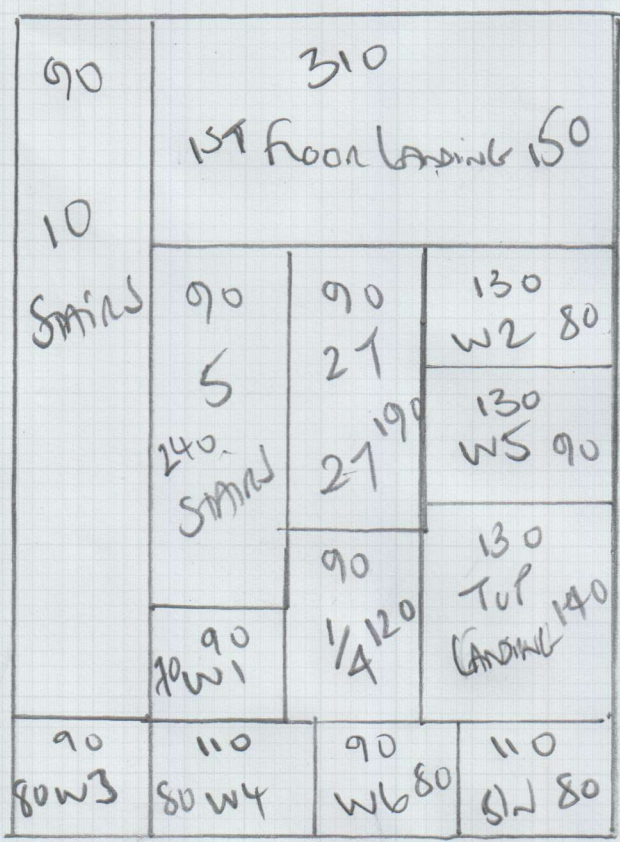 90
10
STAIRS
310
1ST FLOOR LANDING 150
90
5
240
STAIRS
90
2T
190
2T
130
W2 80
130
W5 90
90
1/4 120
130
TOP
LANDING 140
90
70 W1
90
80 W3
110
80 W4
90
W6 80
110
80